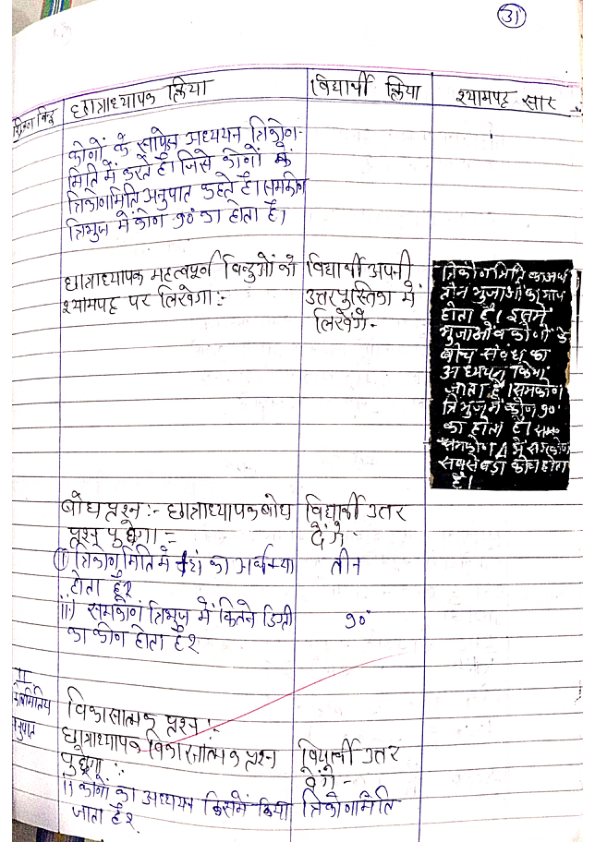 31
शिक्षण बिन्दु
छात्राध्यापक क्रिया
विद्यार्थी क्रिया
श्यामपट्ट सार
कोणों के सापेक्ष अध्ययन त्रिकोण-
मिति में करते है। जिसे कोणों के
त्रिकोणमिति अनुपात कहते है। समकोण
त्रिभुज में कोण ९०° का होता है।
छात्राध्यापक महत्वपूर्ण बिन्दुओं को
श्यामपट्ट पर लिखेगा :-
विद्यार्थी अपनी
उत्तरपुस्तिका में
लिखेंगे -
त्रिकोणमिति का अर्थ
तीन भुजाओं का माप
होता है। इसमें
भुजाओ व कोणों के
बीच संबंध का
अध्ययन किया
जाता है। समकोण
त्रिभुज में कोण ९०°
का होता है। सम
समकोण Δ में समकोण
सबसे बड़ा कोण होता
है।
बोध प्रश्न :- छात्राध्यापक बोध
प्रश्न पुछेगा :-
विद्यार्थी उत्तर
देंगे -
i) त्रिकोणमिति में का अर्थ क्या
होता है?
तीन
ii) समकोण त्रिभुज में कितने डिग्री
का कोण होता है?
९०°
II
त्रिकोणमितिय
अनुपात
विकासात्मक प्रश्न :-
छात्राध्यापक विकासात्मक प्रश्न
पुछेगा :-
विद्यार्थी उत्तर
देंगे -
i) कोणों का अध्ययन किसमें किया
जाता है?
त्रिकोणमिति